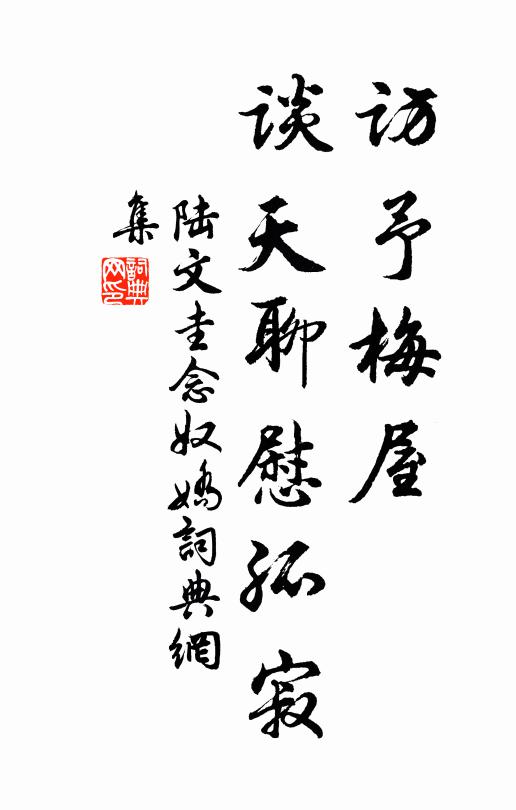 访予梅屋
谈天聊慰孤寂
陆文圭念奴嬌詞典網
集
詞典
网印